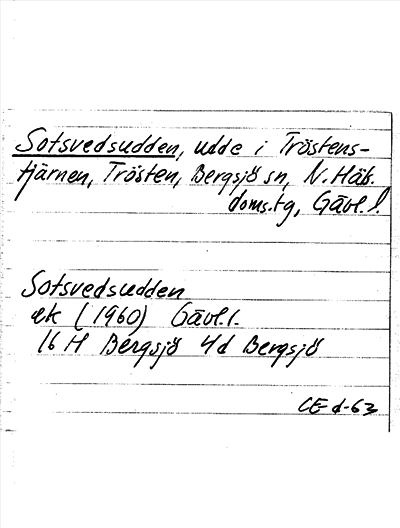 Sotsvedsudden, udde i Tröstens-
tjärnen, Trösten, Bergsjö sn, N. Häls.
doms.tg, Gävl. l.
Sotsvedsudden
ek (1960) Gävl. l.
16 H Bergsjö 4d Bergsjö
CE d-63